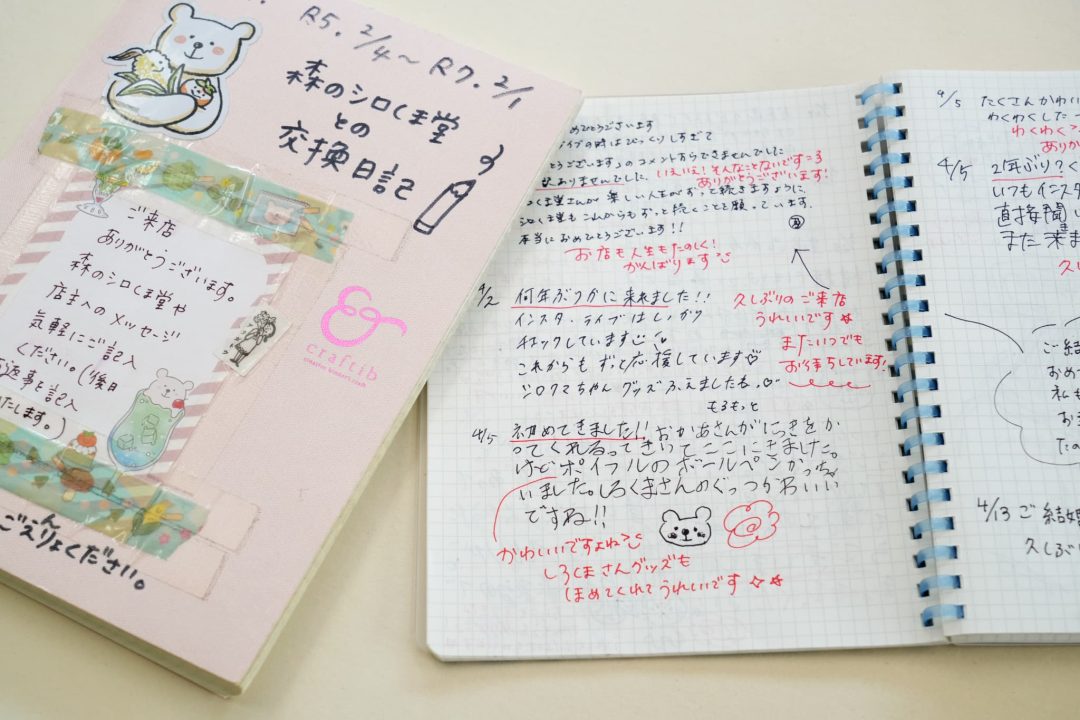 R5. 2/4 〜 R7. 2/1
森のシロくま堂
との
交換日記
ご来店
ありがとうございます。
森のシロくま堂や
店主へのメッセージ
気軽にご記入
ください。(後日
返事を記入
たします。)
ごえんりょください。
craftib
めでとうございます
ライブの時はびっくりしすぎて
とうございます」のコメントすらできませんでした
訳ありませんでした。いえいえ!そんなことないです
ありがとうございます!
くま堂さんが楽しい人生がずっと続きますように
シロくま堂もこれからもずっと続くことを願っています。
本当におめでとうございます!!
お店も人生もたのしく!
がんばります
4/2 何年ぶりかに来れました!!
インスタ・ライブはしっかり
チェックしています
これからもずっと応援しています♡
シロクマちゃんグッズふえましたね
久しぶりのご来店
うれしいです☆
またいつでも
お待ちしています!
もるもっと
4/5 初めてきました!! おかあさんがにっきをか
ってくれるってきいてここにきました。
けどポイフルのボールペンかっちゃ
いました。しろくまさんのぐっつかわいい
ですね!!
かわいいですよね
しろくまさんグッズも
ほめてくれてうれしいです☆★
4/5 たくさんかわい
わくわくした
わくわく
ありが
4/5 2年ぶり?く
いつもインスタ
直接聞い
また来ま
久し
ご結
おめ
私も
お
たの
4/13 ご結婚
久しぶり